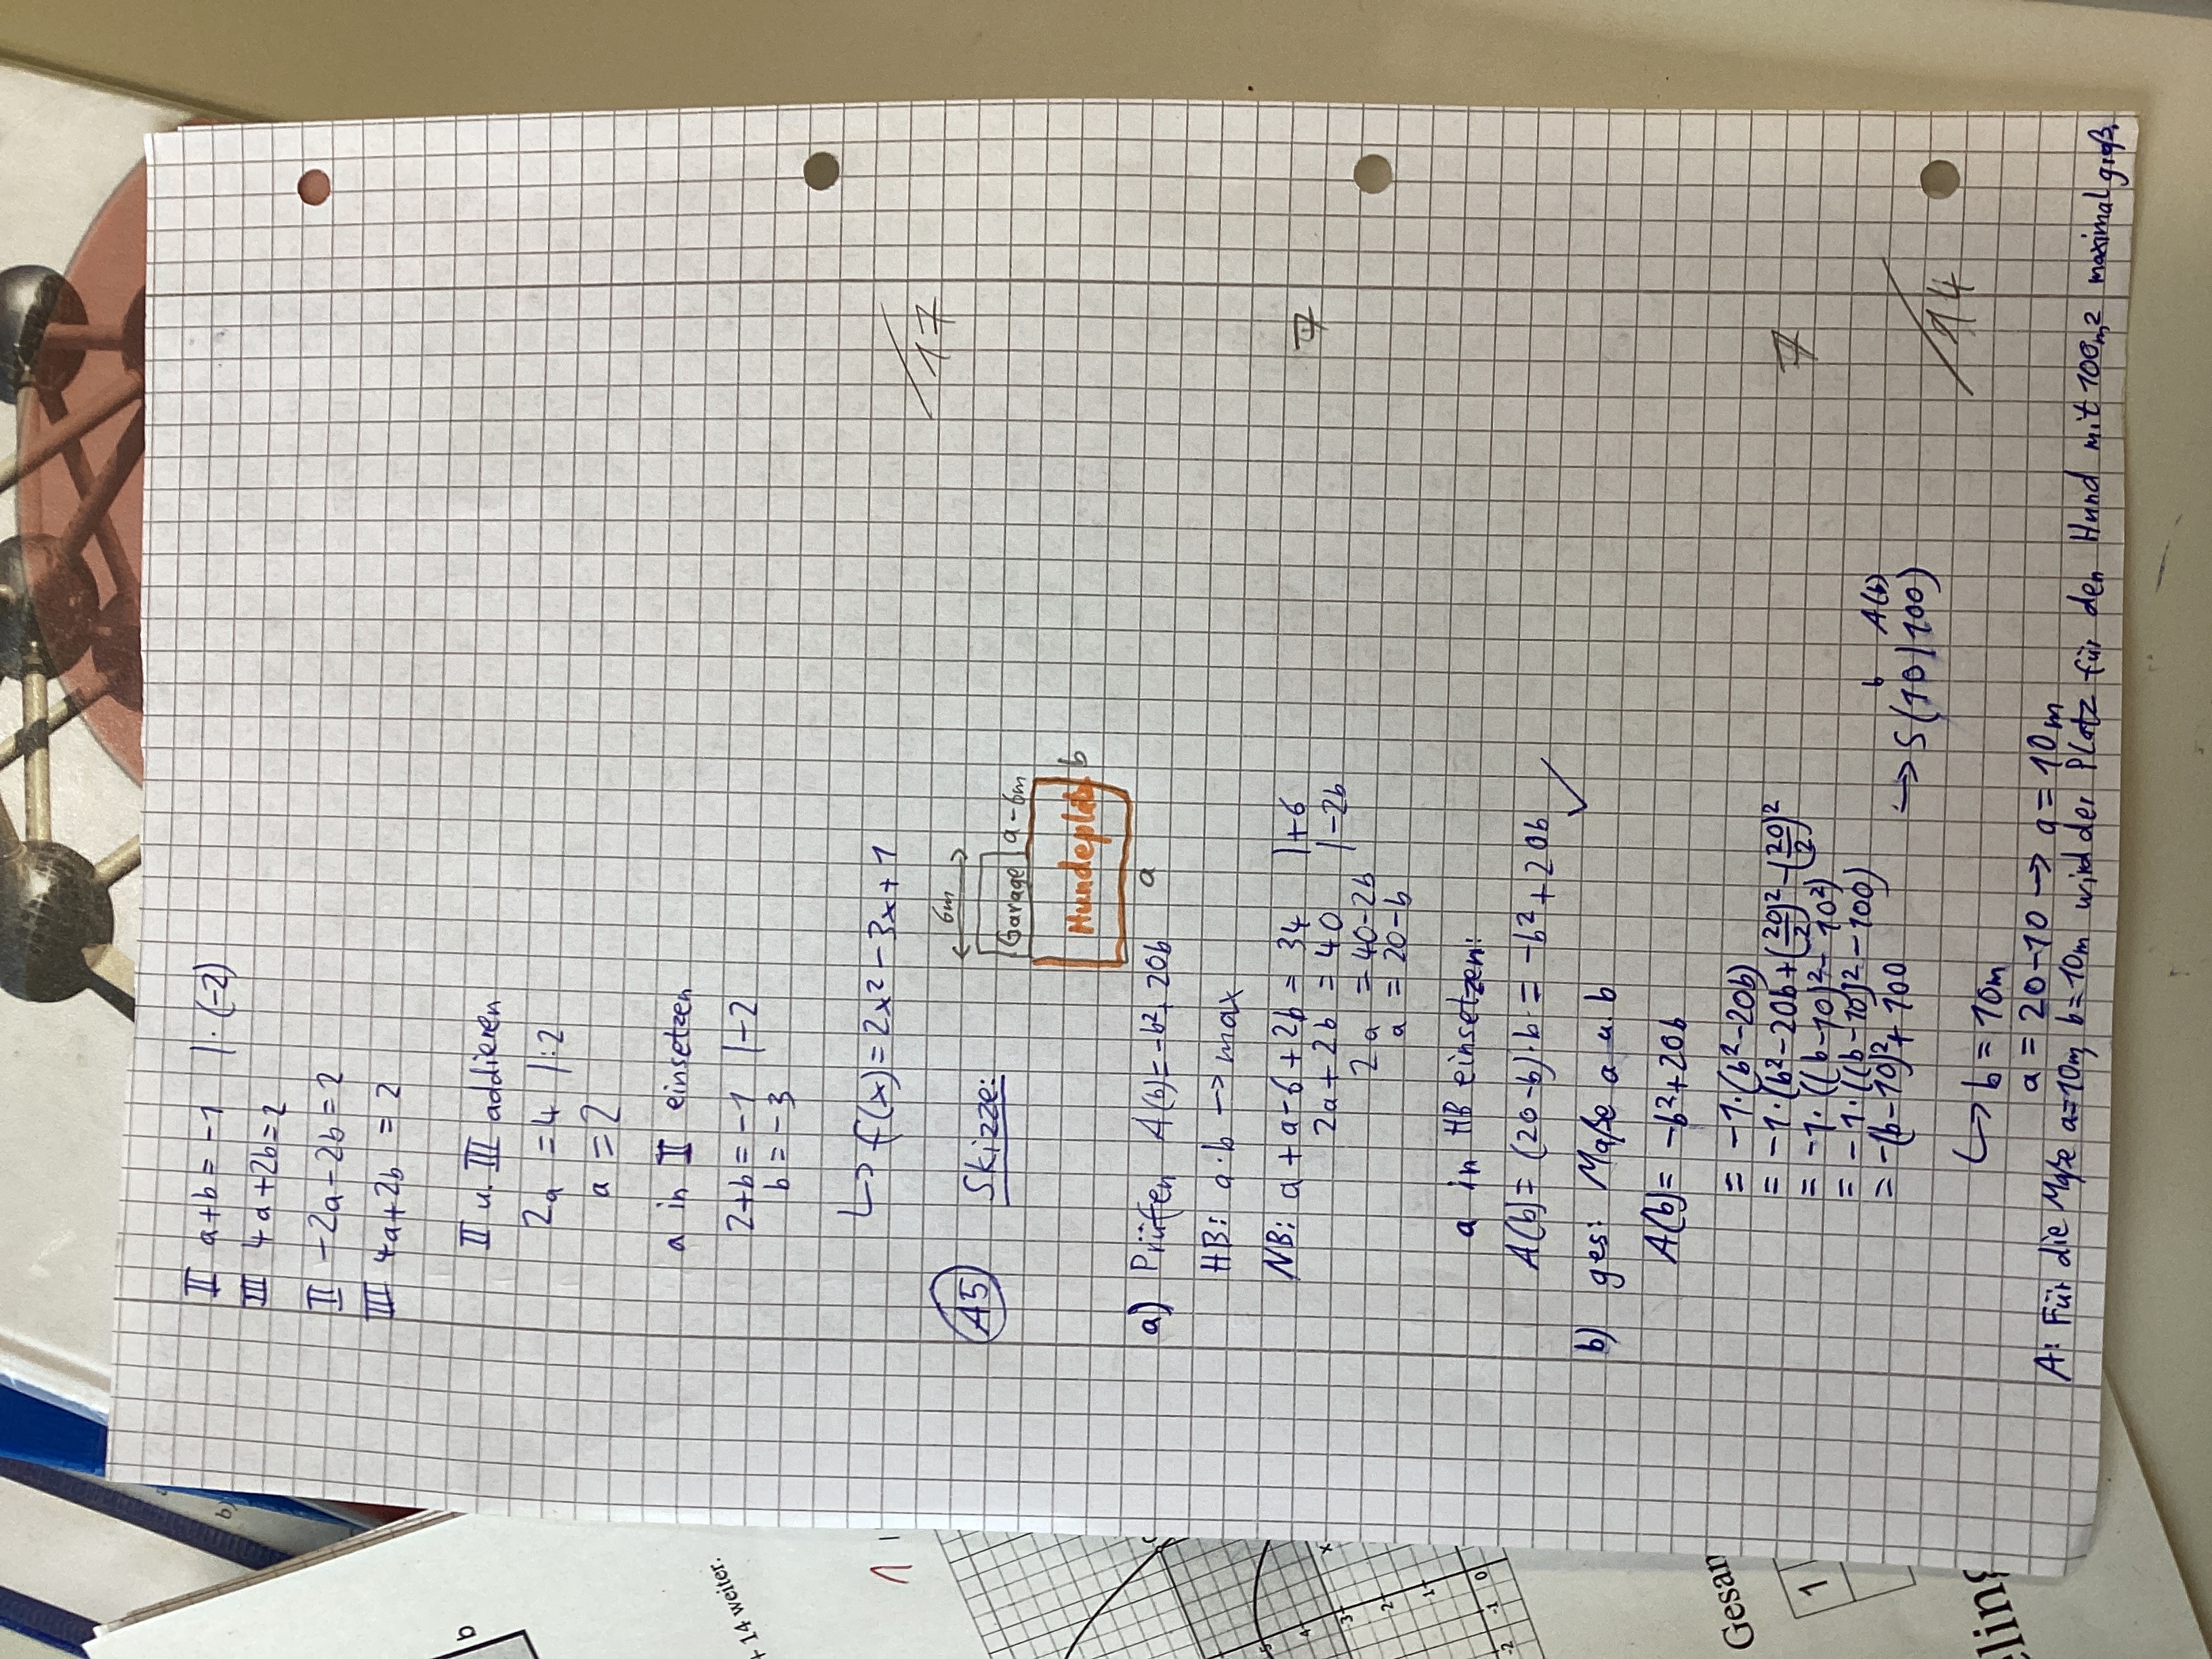 II a+b=-1 |·(-2)
III 4a+2b=2
II -2a-2b=2
III 4a+2b=2
II u. III addieren
2a=4 |:2
a=2
a in II einsetzen
2+b=-1 |-2
b=-3
↳ f(x)=2x²-3x+1
/17
A5 Skizze:
6m
Garage a-6m
Hundeplatz b
a
a) Prüfen A(b)=-b²+20b
HB: a·b → max
NB: a+a-6+2b=34 |+6
7
2a+2b=40 |-2b
2a=40-2b
a=20-b
a in HB einsetzen:
A(b)=(20-b)·b=-b²+20b ✓
b) ges: Maße a u. b
A(b)=-b²+20b
7
=-1·(b²-20b)
=-1·(b²-20b+(20/2)²-(20/2)²
=-1·((b-10)²-10²)
=-1·((b-10)²-100)
=-(b-10)²+100 → S(10|100)
b A(b)
/14
↳ b=10m
a=20-10 → a=10m
A: Für die Maße a=10m b=10m wird der Platz für den Hund mit 100m² maximal groß.
b)
+ 14 weiter.
b
1
x
0
1
2
3
4
5
-1
-2
Gesam
1